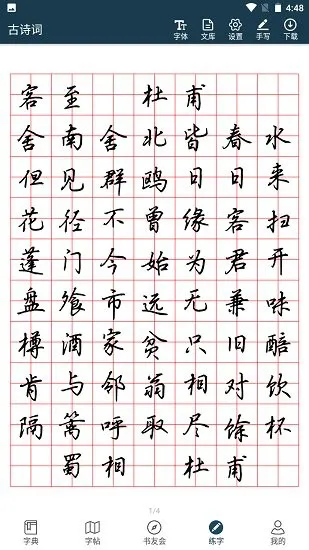 4:48
古诗词 字体 文库 设置 手写 下载
客至 杜甫
舍南舍北皆春水
但见群鸥日日来
花径不曾缘客扫
蓬门今始为君开
盘飧市远无兼味
樽酒家贫只旧醅
肯与邻翁相对饮
隔篱呼取尽馀杯
蜀相 杜甫
1/4
字典 字帖 书友会 练字 我的